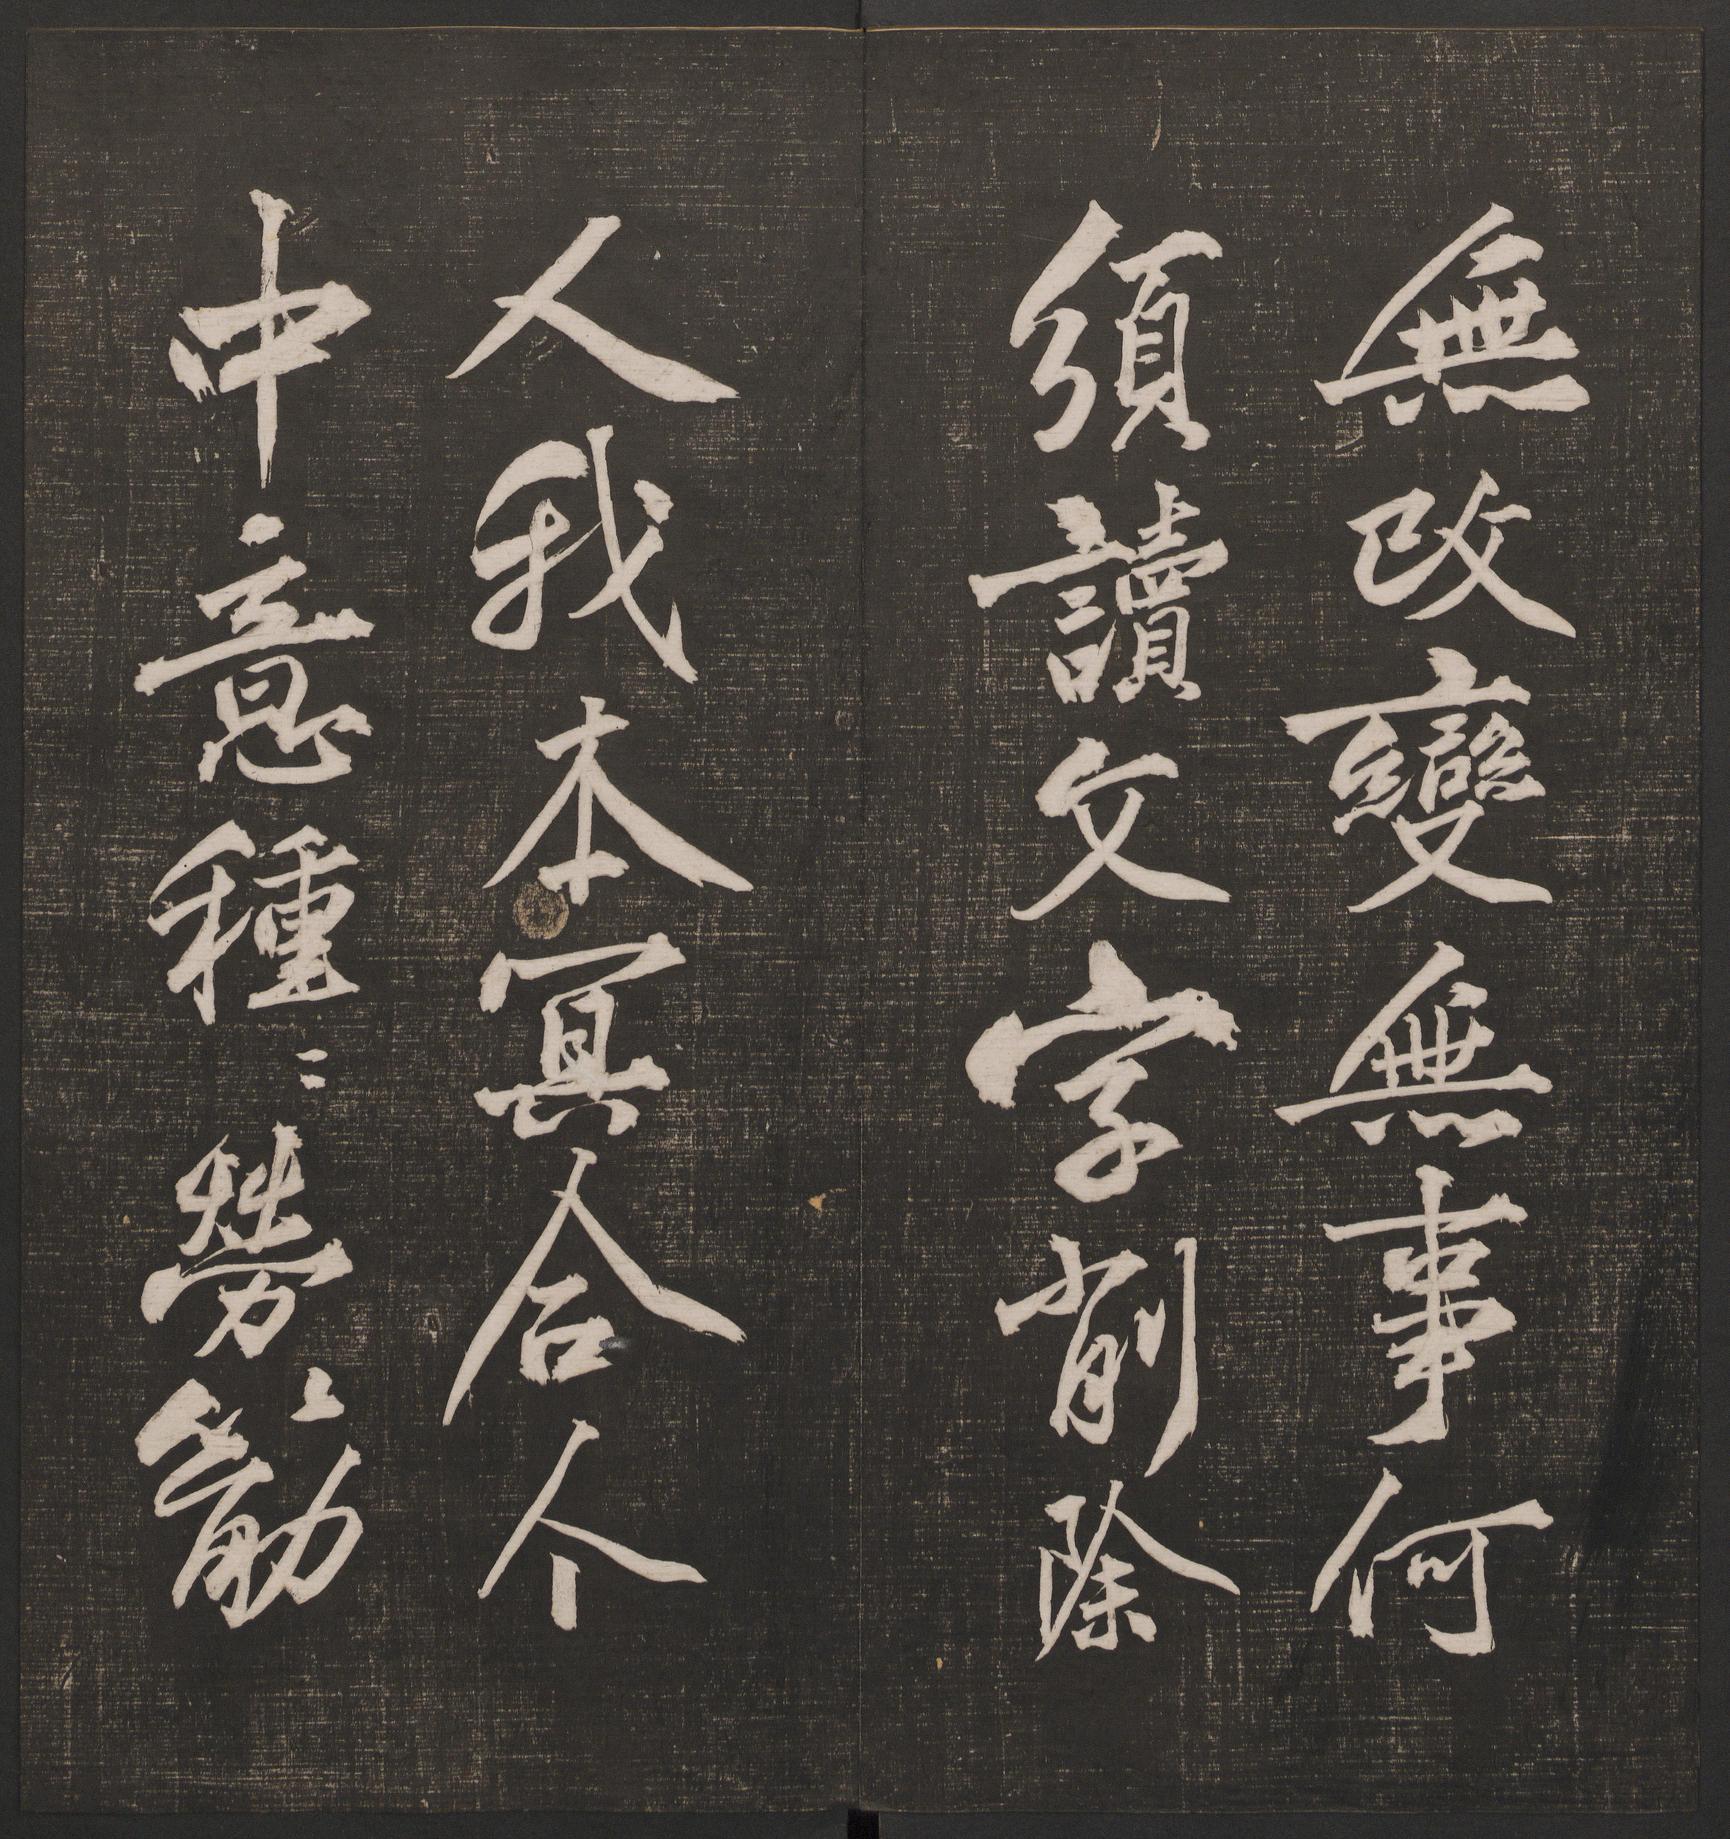 無改變無事何
須讀文字削除
人我本冥合个
中意種〻勞〻筋